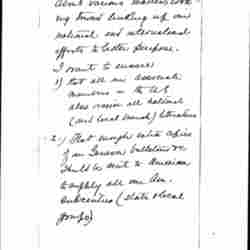 about various matters, with
my broad linking up our
national and international
efforts to better purpose.
I want to ensure
1) that all our associate
members in the U.S
also receive all national
(and local branch) literature
2.) That enough extra copies
of our Geneva bulletins etc
should be sent to America
to supply all our Am.
subscribers (State & local
groups)